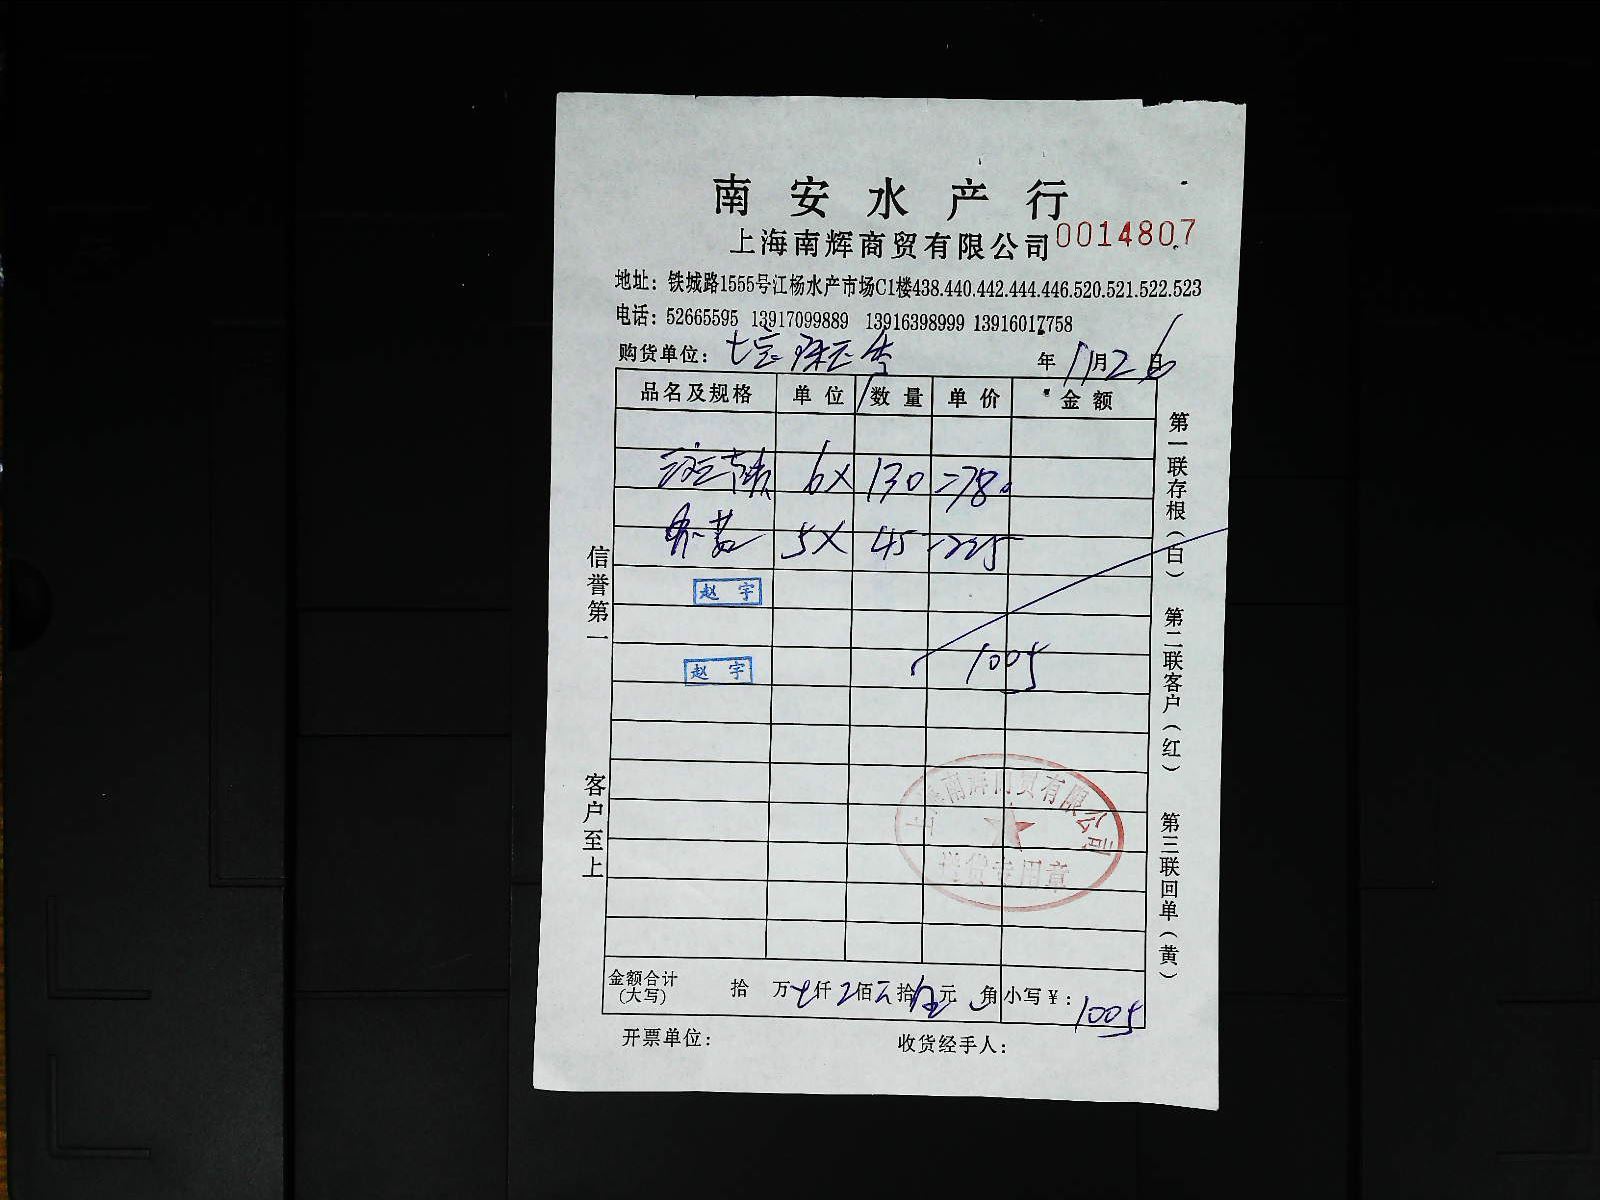 南安水产行
上海南辉商贸有限公司 0014807
地址：铁城路1555号江杨水产市场C1楼438.440.442.444.446.520.521.522.523
电话：52665595 13917099889 13916398999 13916017758
购货单位：七宝 年11月26日
品名及规格 单位 数量 单价 金额
6× 130 =780
5× 45 =225
赵宇
1005
赵宇
上海南辉商贸有限公司
送货专用章
金额合计（大写） 拾 万 仟 佰 拾 元 角 小写￥：1005
开票单位： 收货经手人：
信誉第一
客户至上
第一联存根（白）
第二联客户（红）
第三联回单（黄）